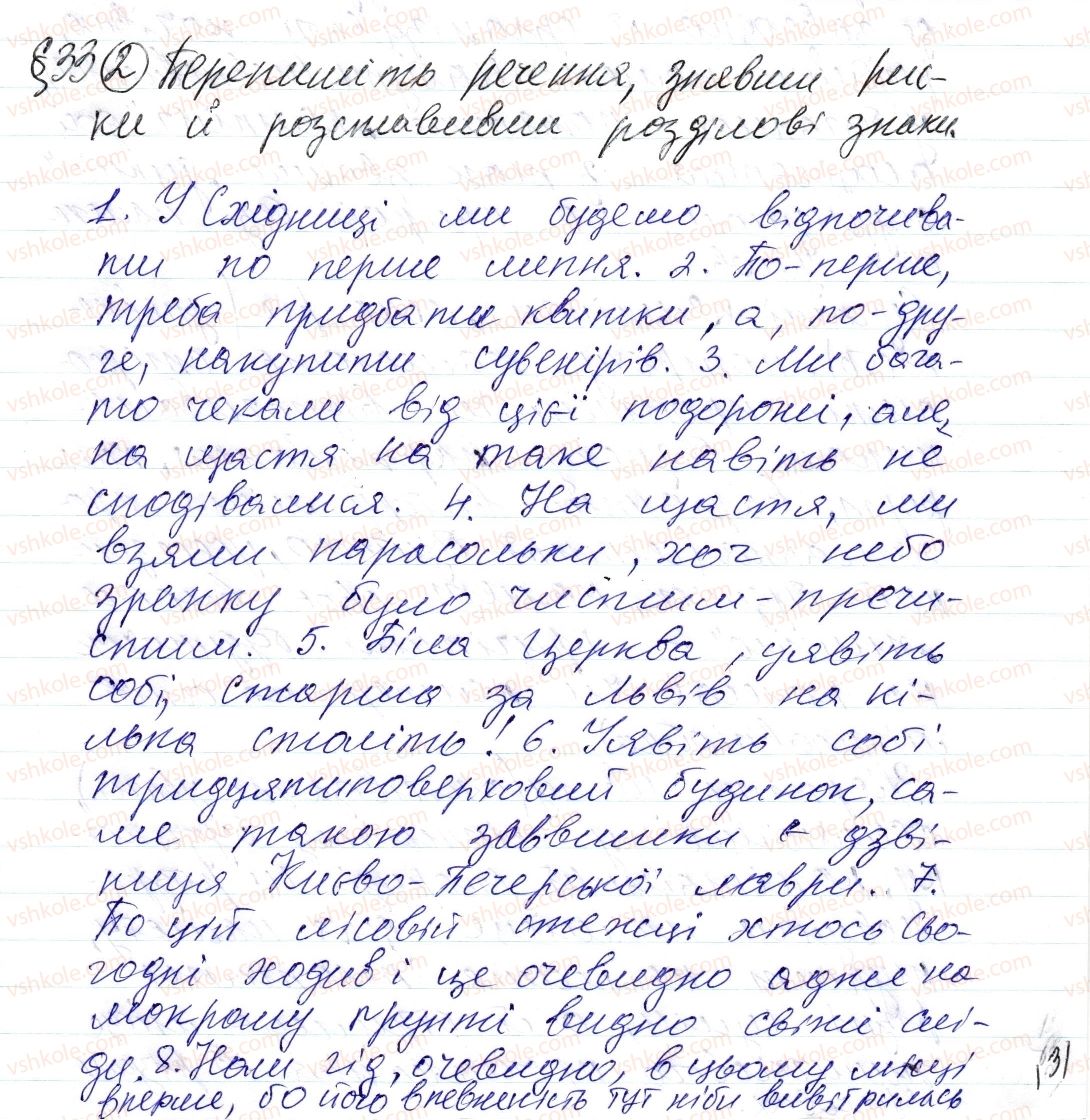 §33 2 Перепишіть речення, знявши рис-
ки й розставивши розділові знаки.
1. У Східниці ми будемо відпочива-
ти по перше липня. 2. По-перше,
треба придбати квитки, а, по-дру-
ге, накупити сувенірів. 3. Ми бага-
то чекали від цієї подорожі, але,
на щастя на таке навіть не
сподівалися. 4. На щастя, ми
взяли парасольки, хоч небо
зранку було чистим-пречи-
стим. 5. Біла Церква, уявіть
собі, старша за Львів на кі-
лька століть! 6. Уявіть собі
тридцятиповерховий будинок, са-
ме такою заввишки є дзві-
ниця Києво-Печерської лаври. 7.
По цій лісовій стежці хтось сьо-
годні ходив і це очевидно адже на
мокрому ґрунті видно свіжі слі-
ди. 8. Наш гід, очевидно, в цьому місці
вперше, бо його впевненість тут ніби вивітрилась
31